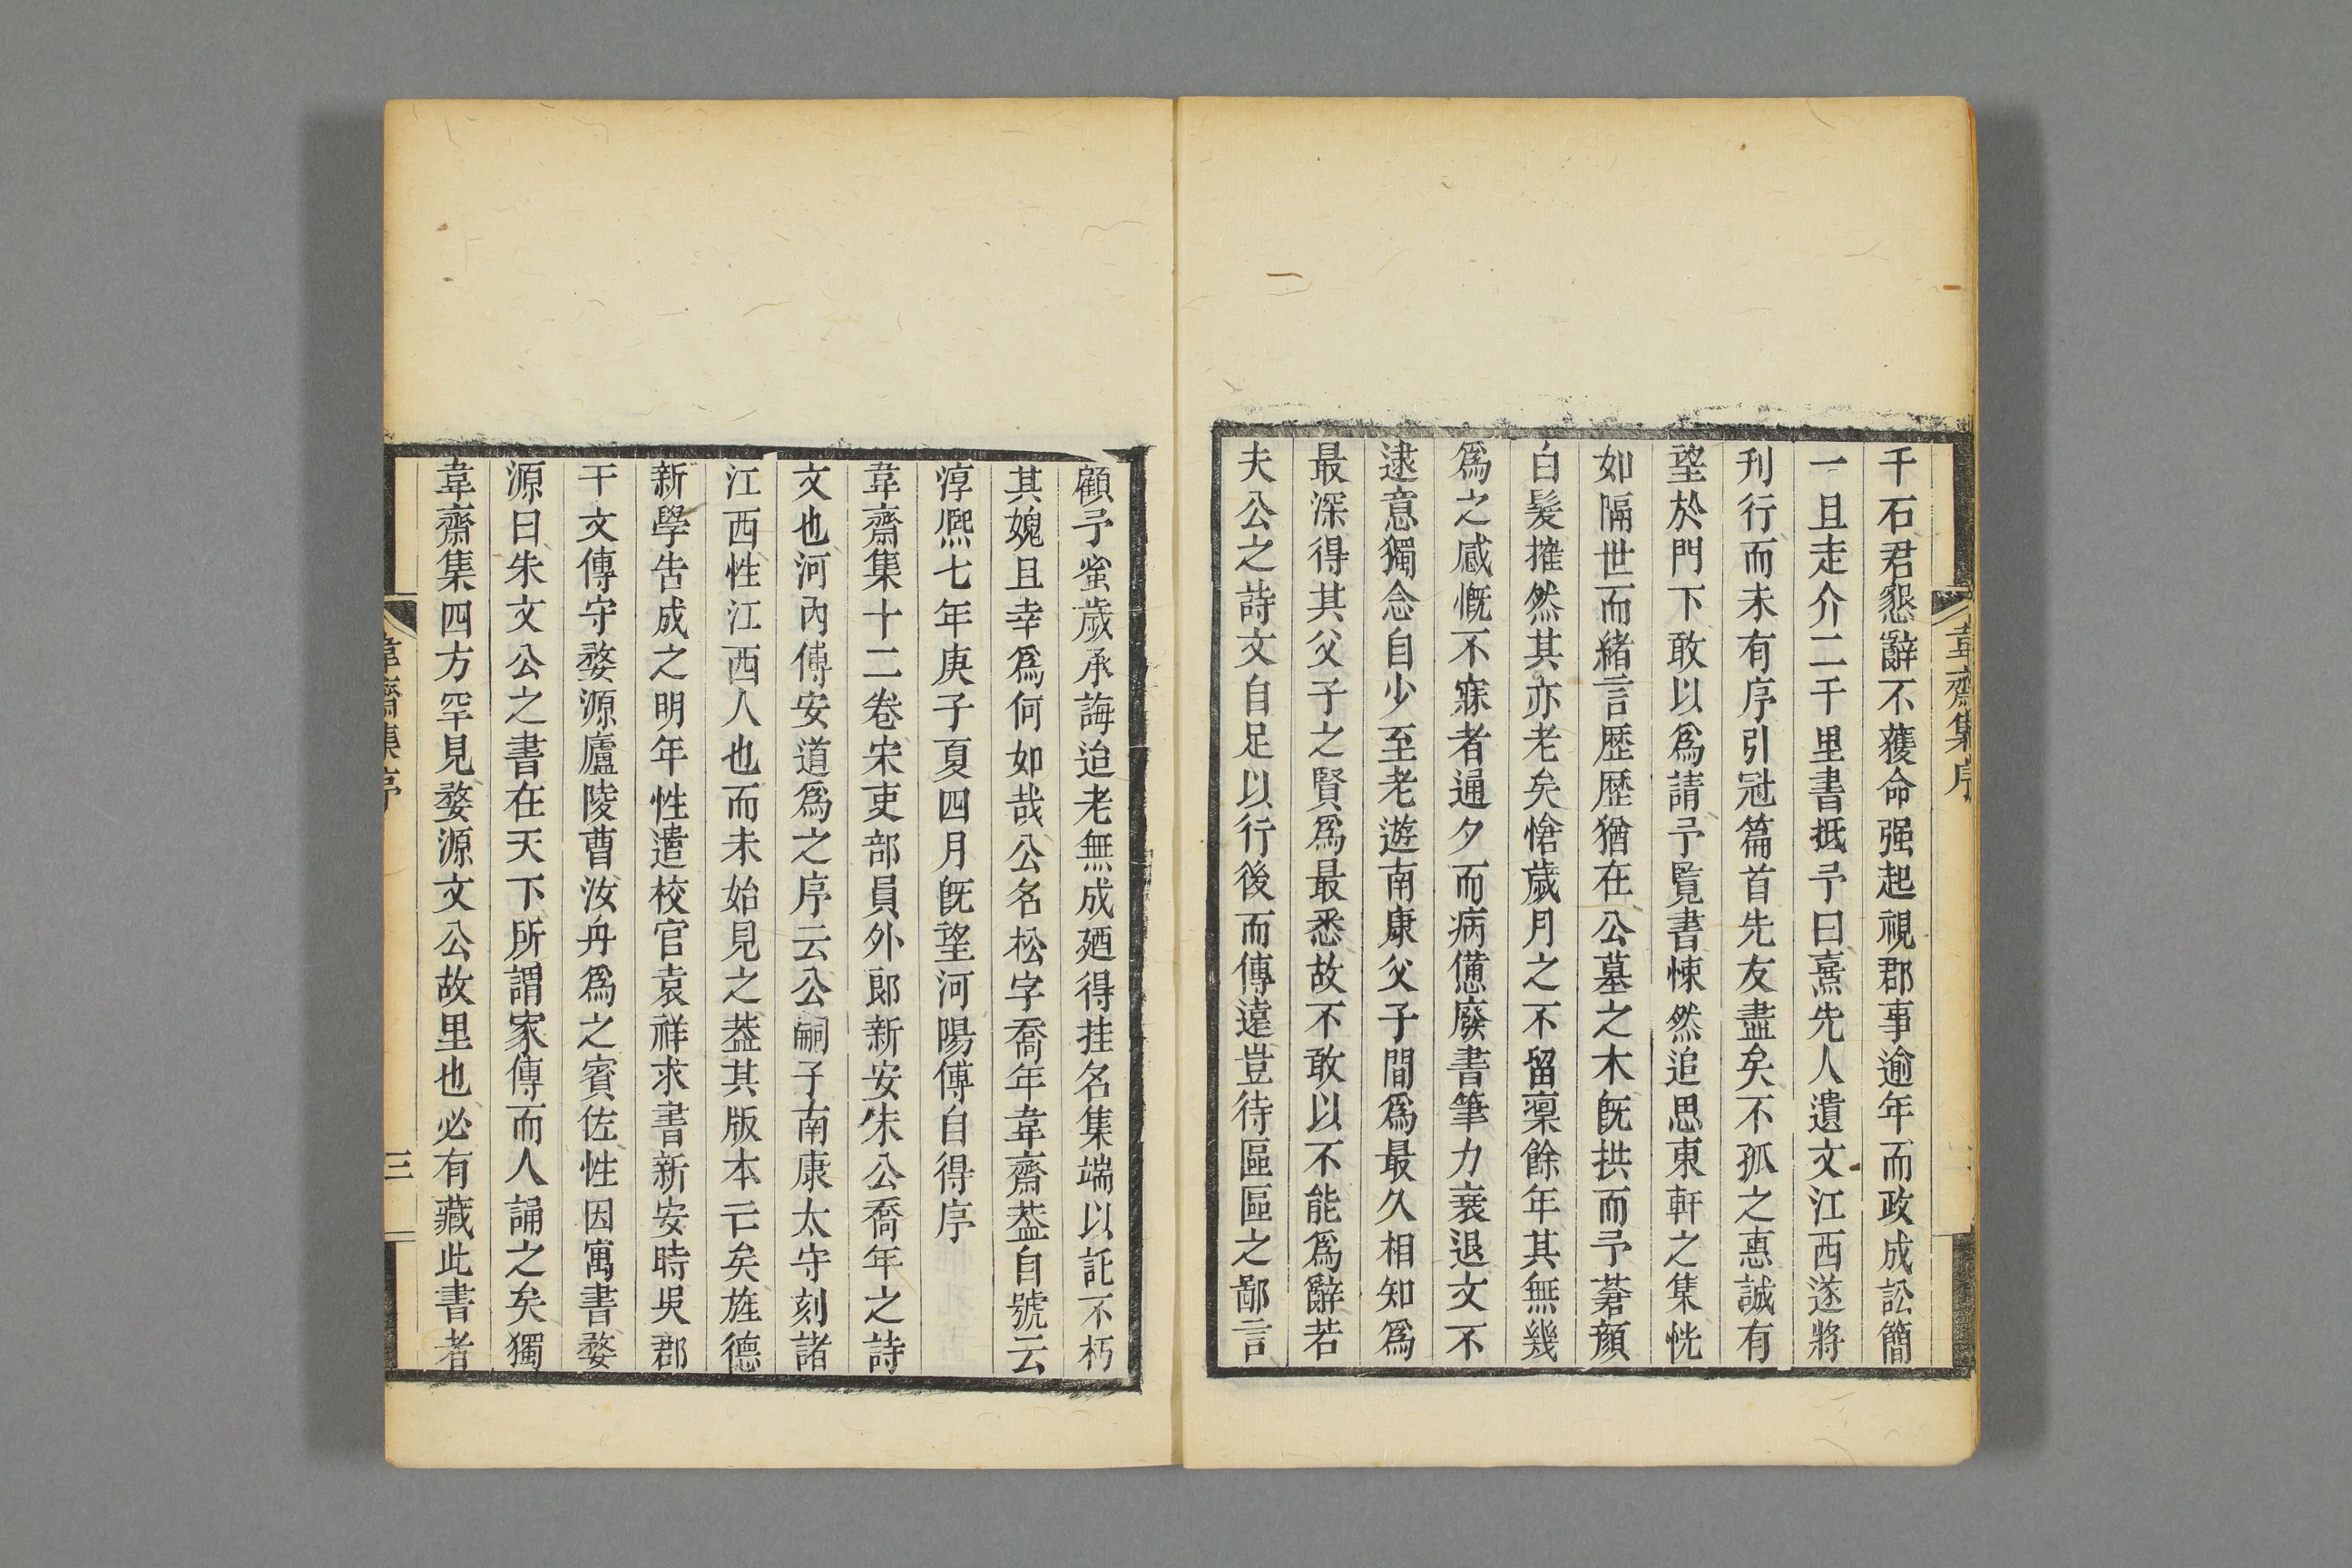 韋齋集序
千石君懇辭不獲命强起視郡事逾年而政成訟簡
一旦走介二千里書抵予曰熹先人遺文江西遂將
刋行而未有序引冠篇首先友盡矣不孤之惠誠有
望於門下敢以爲請予覽書悚然追思東軒之集恍
如隔世而緒言歴歴猶在公墓之木旣拱而予蒼顔
白髮摧然其亦老矣愴歲月之不留凜餘年其無幾
爲之感慨不寐者通夕而病憊廢書筆力衰退文不
逮意獨念自少至老遊南康父子間爲最久相知爲
最深得其父子之賢爲最悉故不敢以不能爲辭若
夫公之詩文自足以行後而傳遠豈待區區之鄙言
顧予蚤歲承誨迨老無成廼得挂名集端以託不朽
其媿且幸爲何如哉公名松字喬年韋齋葢自號云
淳熙七年庚子夏四月旣望河陽傅自得序
韋齋集十二卷宋吏部員外郎新安朱公喬年之詩
文也河內傅安道爲之序云公嗣子南康太守刻諸
江西性江西人也而未始見之葢其版本亡矣旌德
新學告成之明年性遣校官袁祥求書新安時吳郡
干文傳守婺源廬陵曹汝舟爲之賓佐性因寓書婺
源曰朱文公之書在天下所謂家傳而人誦之矣獨
韋齋集四方罕見婺源文公故里也必有藏此書者
韋齋集序
三